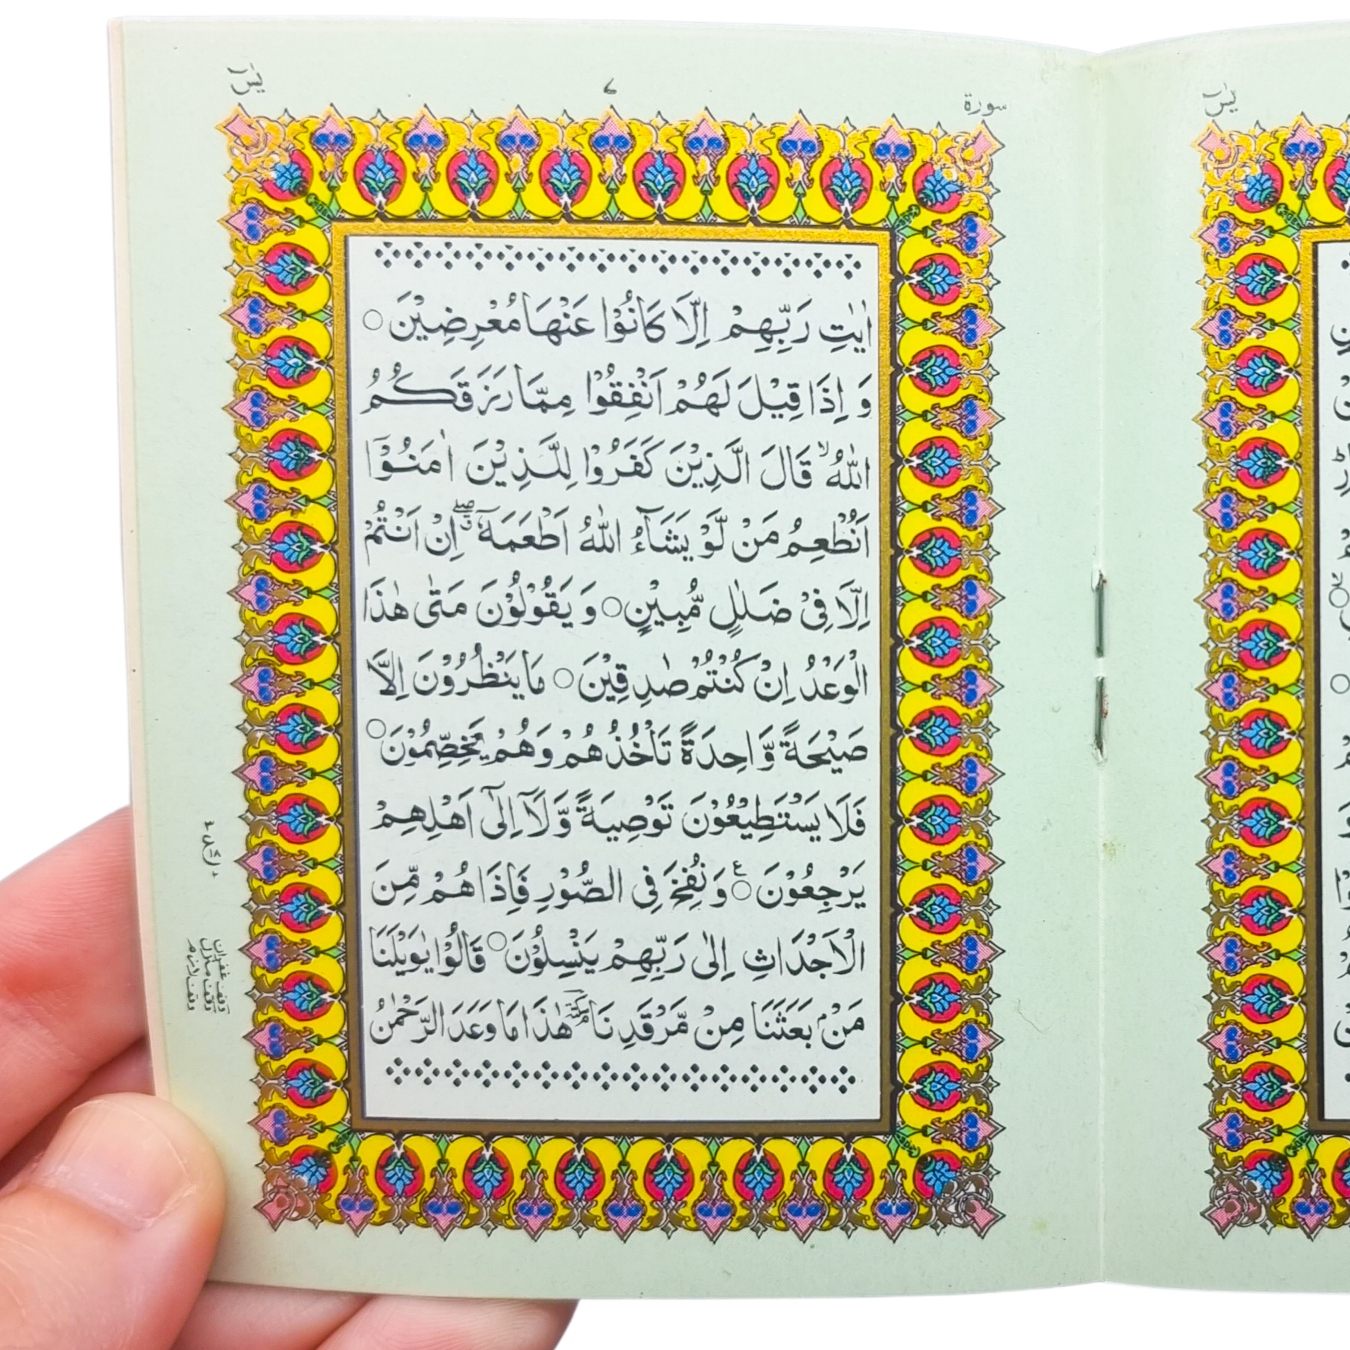 سورة ٧ يٰسٓ
اٰيٰتِ رَبِّهِمْ اِلَّا كَانُوْا عَنْهَا مُعْرِضِيْنَ ○
وَ اِذَا قِيْلَ لَهُمْ اَنْفِقُوْا مِمَّا رَزَقَكُمُ
اللّٰهُ ۙ قَالَ الَّذِيْنَ كَفَرُوْا لِلَّذِيْنَ اٰمَنُوْۤا
اَنُطْعِمُ مَنْ لَّوْ يَشَآءُ اللّٰهُ اَطْعَمَهٗۤ ۖ اِنْ اَنْتُمْ
اِلَّا فِيْ ضَلٰلٍ مُّبِيْنٍ ○ وَ يَقُوْلُوْنَ مَتٰى هٰذَا
الْوَعْدُ اِنْ كُنْتُمْ صٰدِقِيْنَ ○ مَا يَنْظُرُوْنَ اِلَّا
صَيْحَةً وَّاحِدَةً تَاْخُذُهُمْ وَهُمْ يَخِصِّمُوْنَ ○
فَلَا يَسْتَطِيْعُوْنَ تَوْصِيَةً وَّلَاۤ اِلٰۤى اَهْلِهِمْ
يَرْجِعُوْنَ ○ ع وَ نُفِخَ فِى الصُّوْرِ فَاِذَا هُمْ مِّنَ
الْاَجْدَاثِ اِلٰى رَبِّهِمْ يَنْسِلُوْنَ ○ قَالُوْا يٰوَيْلَنَا
مَنْۢ بَعَثَنَا مِنْ مَّرْقَدِنَا سكتة هٰذَا مَا وَعَدَ الرَّحْمٰنُ
وقف غفران
وقف منزل
وقف لازم
يٰسٓ